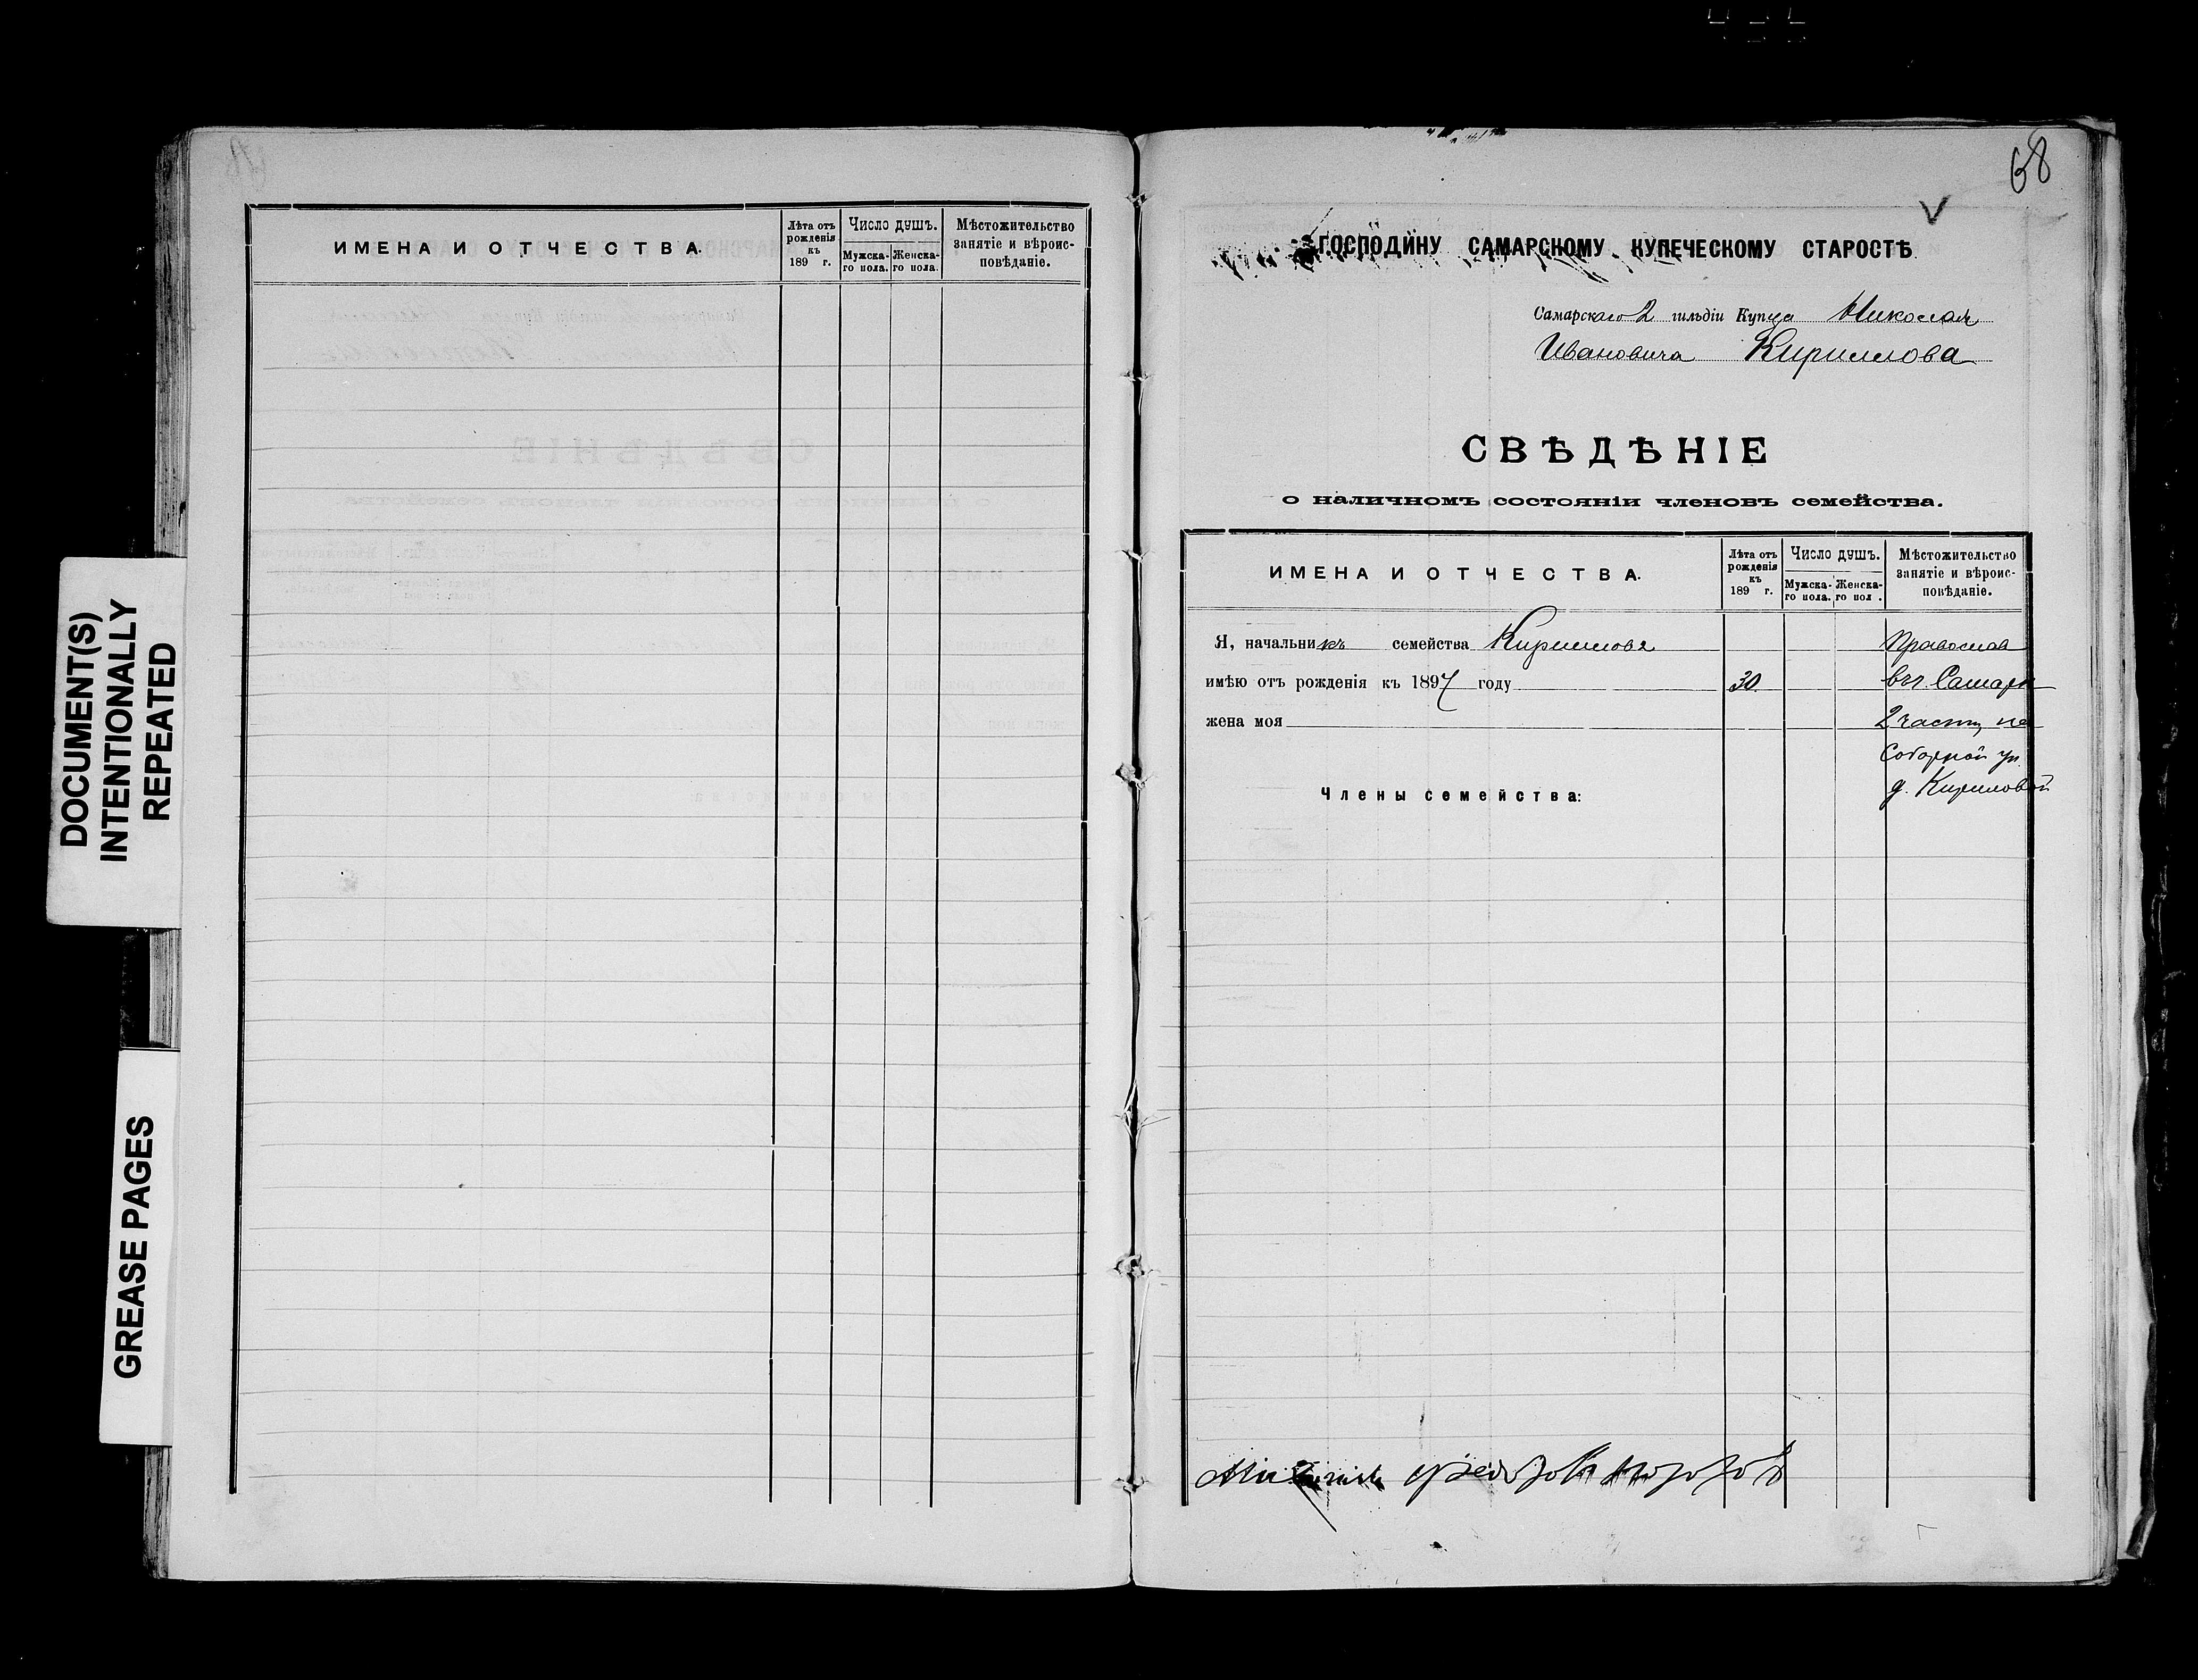 DOCUMENT(S)
INTENTIONALLY
REPEATED
GREASE PAGES
ИМЕНА И ОТЧЕСТВА.
Лѣта отъ рожденія къ 189 г.
Число душъ.
Мужска-го пола.
Женска-го пола.
Мѣстожительство занятіе и вѣроис-повѣданіе.
68
ГОСПОДИНУ САМАРСКОМУ КУПЕЧЕСКОМУ СТАРОСТѢ
Самарскаго 2 гильдіи Купца Николая
Ивановича Кириллова
СВѢДѢНІЕ
о наличномъ состояніи членовъ семейства.
ИМЕНА И ОТЧЕСТВА.
Лѣта отъ рожденія къ 189 г.
Число душъ.
Мужска-го пола.
Женска-го пол .
Мѣстожительство занятіе и вѣроис-повѣданіе.
Я, начальникъ семейства Кирилловъ Православ
имѣю отъ рожденія къ 1897 году 30 въ г. Самарѣ
жена моя 2 части, на
Соборной ул.
д. Кириловой
Члены семейства: